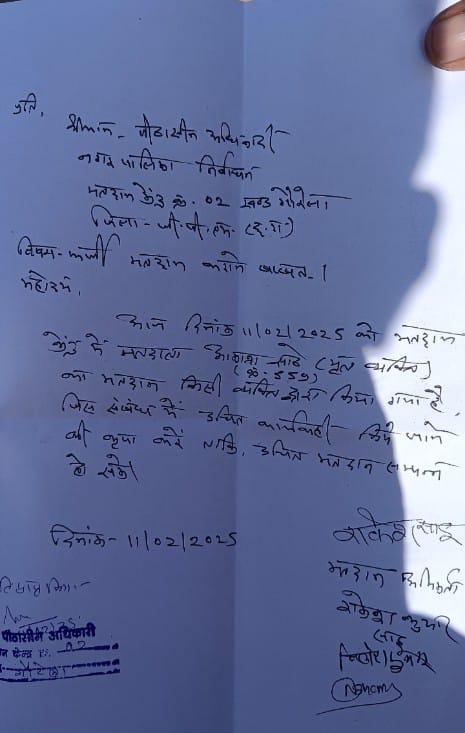 प्रति,
श्रीमान - पीठासीन अधिकारी
नगर पालिका निर्वाचन
मतदान केंद्र क्र. 02 खण्ड गौरेला
जिला - जी.पी.एम. (छ.ग.)
विषय - फर्जी मतदान करने बाबत् ।
महोदय,
आज दिनांक 11/02/2025 को मतदान
केंद्र में मतदाता साहू (मृत व्यक्ति)
(क्र. 559)
का मतदान किसी व्यक्ति द्वारा किया गया है,
जिस संबंध में उचित कार्यवाही किये जाने
की कृपा करें ताकि, उचित मतदान सम्पन्न
हो सके।
दिनांक - 11/02/2025
राकेश साहू
मतदान अभिकर्ता
राकेश कुमार
साहू
पीठासीन अधिकारी
केन्द्र क्र. 02
गौरेला